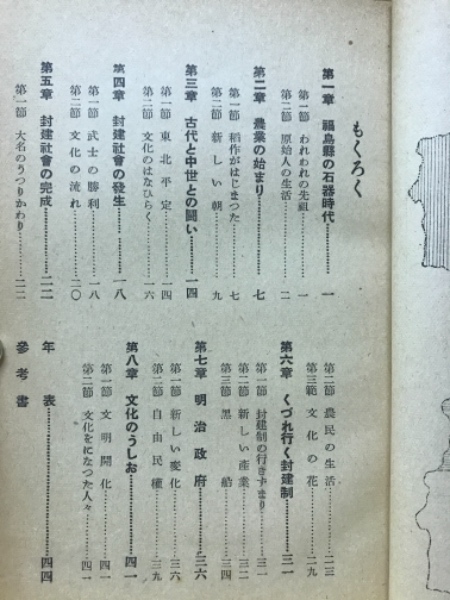 もくろく
第一章 福島縣の石器時代…………一
第一節 われわれの先祖…………一
第二節 原始人の生活…………二
第二章 農業の始まり…………七
第一節 稲作がはじまつた…………七
第二節 新しい朝…………九
第三章 古代と中世との闘い…………一四
第一節 東北平定…………一四
第二節 文化のはなひらく…………一六
第四章 封建社會の發生…………一八
第一節 武士の勝利…………一八
第二節 文化の流れ…………二〇
第五章 封建社會の完成…………二二
第一節 大名のうつりかわり…………二二
第二節 農民の生活…………二三
第三範 文化の花…………二九
第六章 くづれ行く封建制…………三一
第一節 封建制の行きずまり…………三一
第二節 新しい産業…………三二
第三節 黒船…………三四
第七章 明治政府…………三六
第一節 新しい変化…………三六
第二節 自由民權…………三九
第八章 文化のうしお…………四一
第一節 文明開化…………四一
第二節 文化をになつた人々…………四一
年表…………四四
參考書